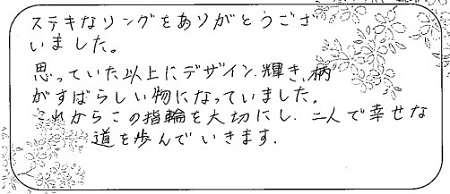 ステキなリングをありがとうござ
いました。
思っていた以上にデザイン、輝き、柄
がすばらしい物になっていました。
これからこの指輪を大切にし、二人で幸せな
道を歩んでいきます.